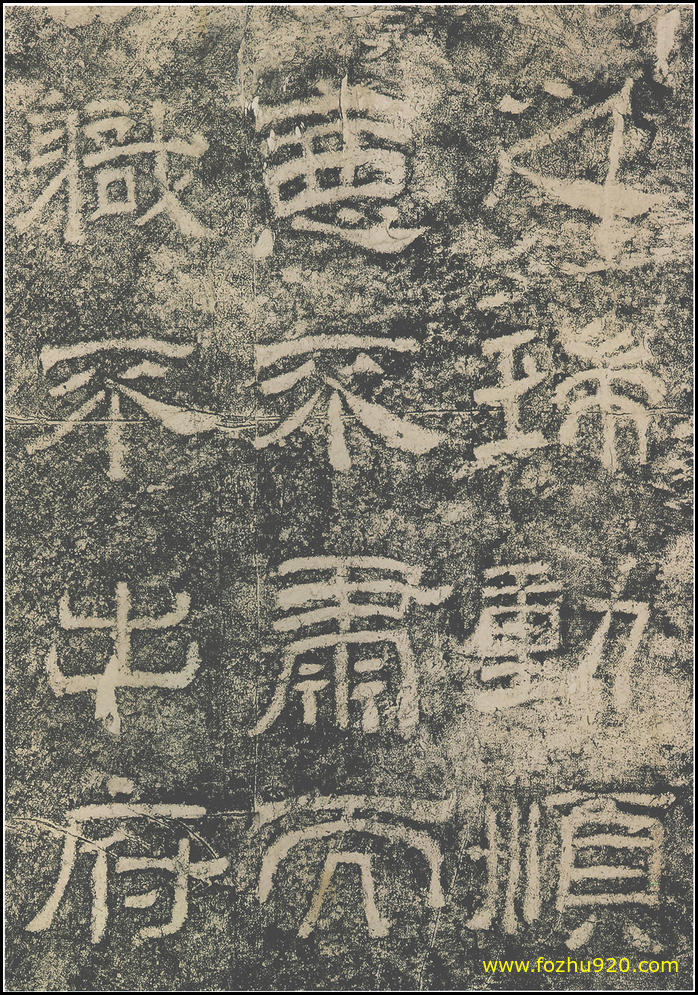 之瑞動順
惡不肅而
職不出府
www.fozhu920.com